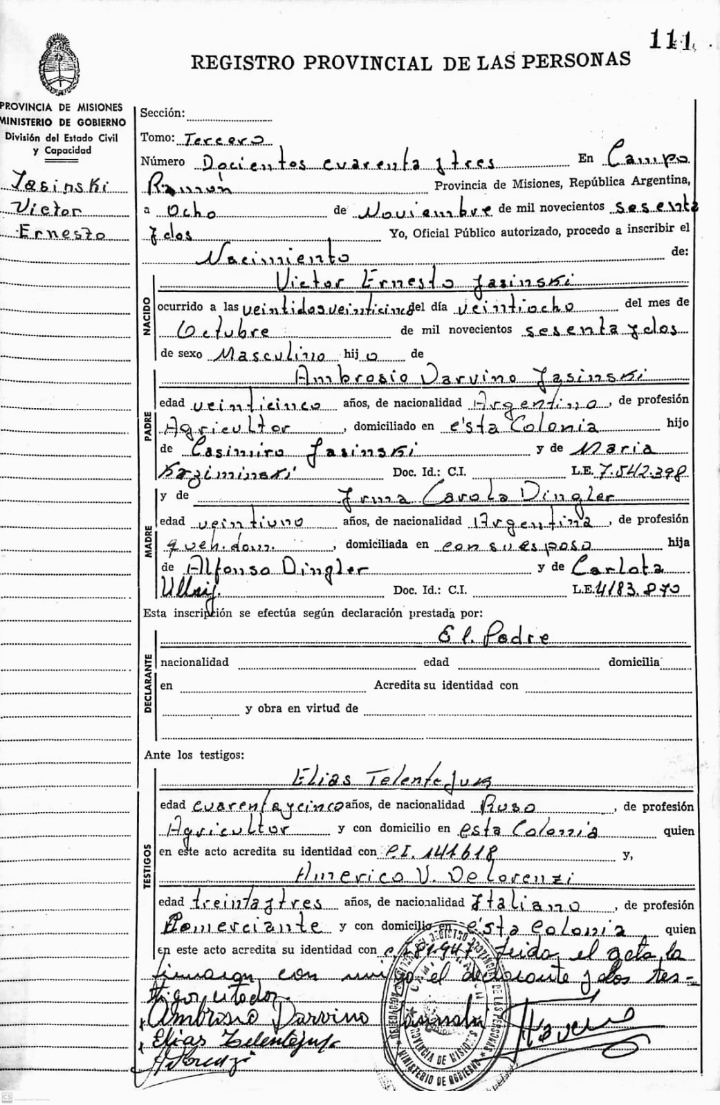 111
REGISTRO PROVINCIAL DE LAS PERSONAS
PROVINCIA DE MISIONES
MINISTERIO DE GOBIERNO
División del Estado Civil
y Capacidad
Jasinski
Victor
Ernesto
Sección:
Tomo: Tercero
Número Docientos cuarenta y tres En Campo
Ramón Provincia de Misiones, República Argentina,
a Ocho de Noviembre de mil novecientos sesenta
y dos Yo, Oficial Público autorizado, procedo a inscribir el
Nacimiento de:
NACIDO
Victor Ernesto Jasinski
ocurrido a las veintidos veinticinco del día veintiocho del mes de
Octubre de mil novecientos sesenta y dos
de sexo Masculino hijo de
PADRE
Ambrosio Darvino Jasinski
edad veinticinco años, de nacionalidad Argentino, de profesión
Agricultor, domiciliado en ésta Colonia hijo
de Casimiro Jasinski y de Maria
Kaziminski Doc. Id.: C.I. L.E. 7.542.398
y de Irma Carola Dingler
MADRE
edad veintiuno años, de nacionalidad Argentina, de profesión
queh. dom., domiciliada en con su esposo hija
de Alfonso Dingler y de Carlota
Doc. Id.: C.I. L.E. 4183.870
Esta inscripción se efectúa según declaración prestada por:
El Padre
DECLARANTE
nacionalidad edad domicilia
en Acredita su identidad con
y obra en virtud de
Ante los testigos:
TESTIGOS
Elias Telentejuk
edad cuarenta y cinco años, de nacionalidad Ruso, de profesión
Agricultor y con domicilio en esta Colonia quien
en este acto acredita su identidad con C.I. 141618 y,
Americo V. De Lorenzi
edad treinta y tres años, de nacionalidad Italiano, de profesión
Comerciante y con domicilio en ésta Colonia, quien
en este acto acredita su identidad con Leida el acta la
firmaron con migo el declarante y dos tes-
tigos citados.
Ambrosio Darvino Jasinski
Elias Telentejuk